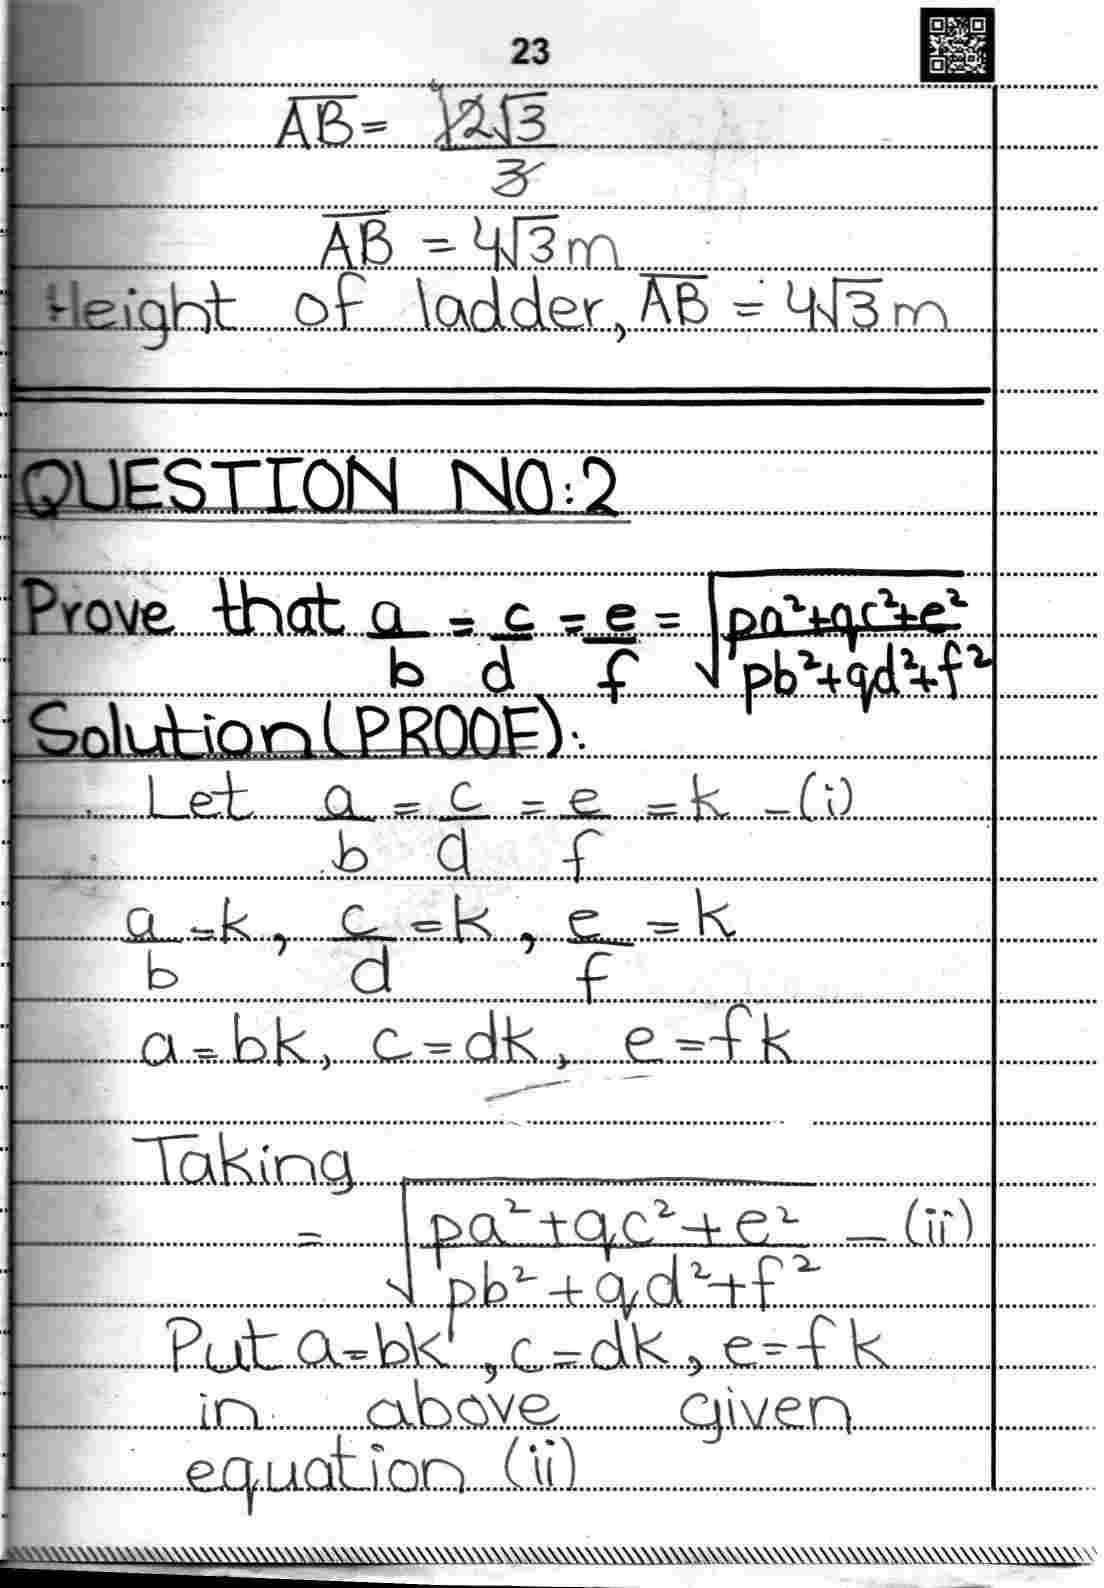 23
AB = 12√3/3
AB = 4√3 m
Height of ladder, AB = 4√3 m
QUESTION NO:2
Prove that a/b = c/d = e/f = √(pa²+qc²+e²/pb²+qd²+f²)
Solution (PROOF):
Let a/b = c/d = e/f = k – (i)
a/b = k, c/d = k, e/f = k
a = bk, c = dk, e = fk
Taking
= √(pa²+qc²+e²/pb²+qd²+f²) – (ii)
Put a = bk, c = dk, e = fk
in above given
equation (ii)